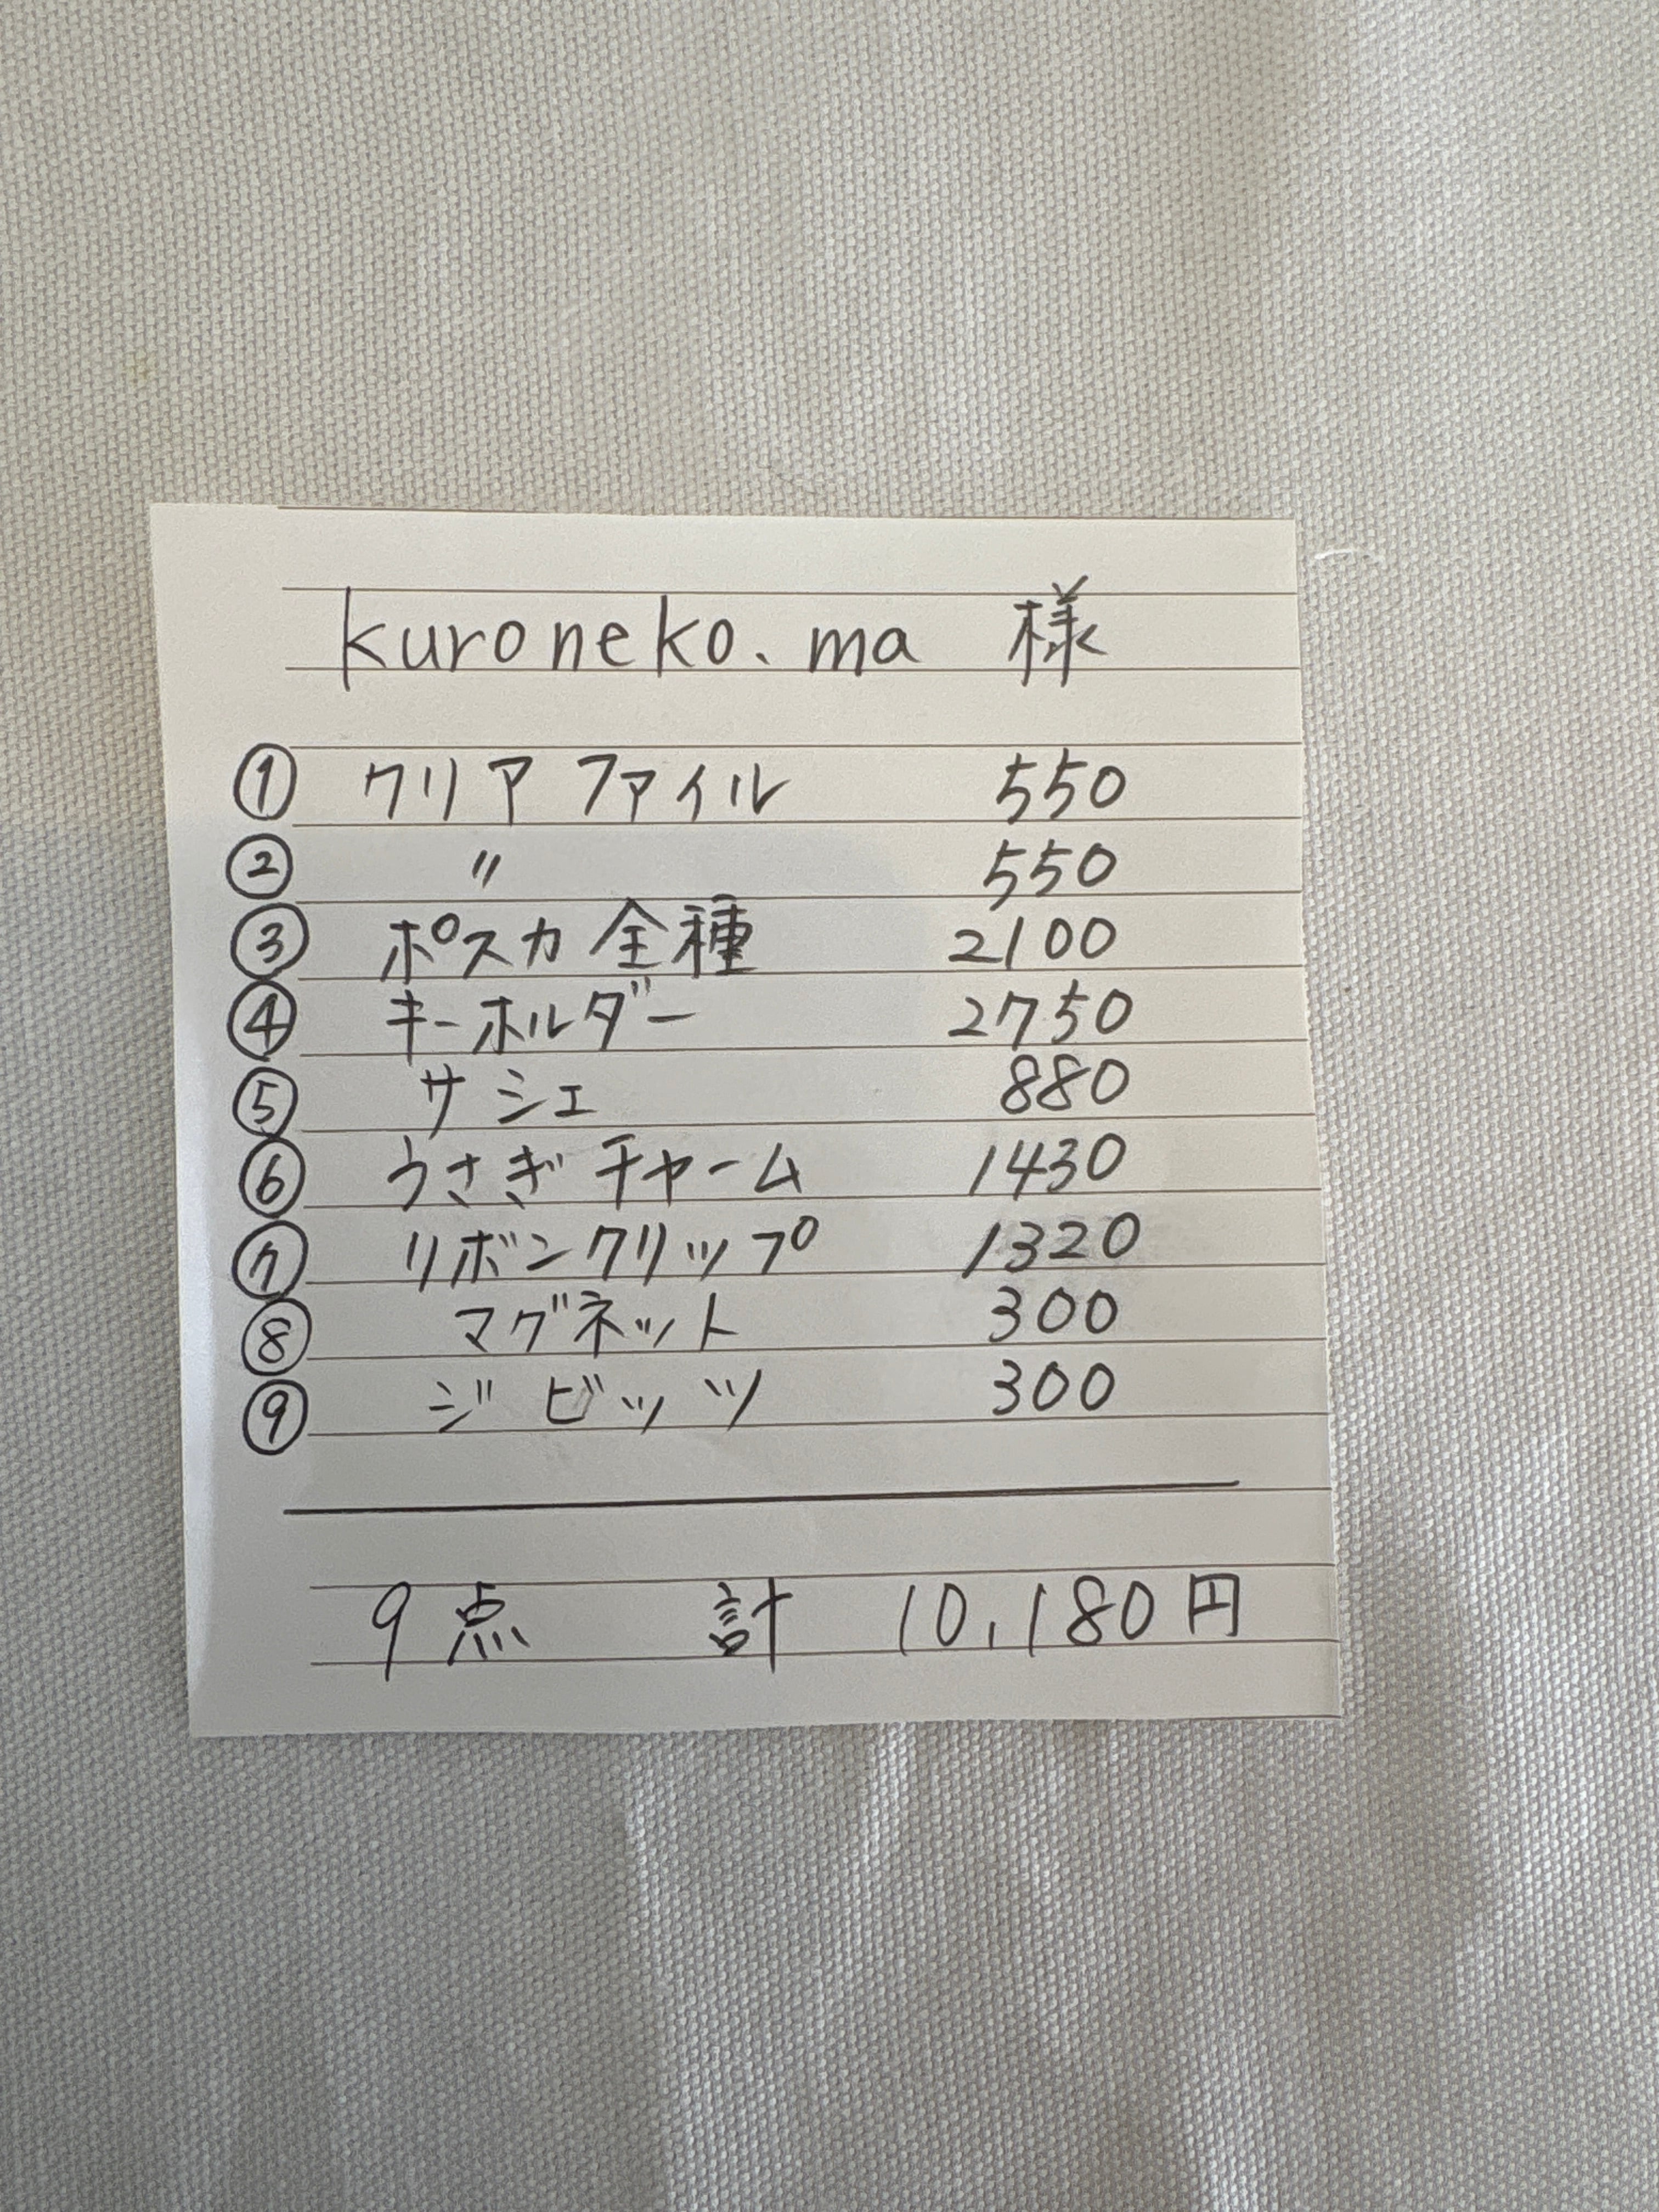 kuroneko.ma 様
① クリアファイル 550
② 〃 550
③ ポスカ全種 2100
④ キーホルダー 2750
⑤ サシェ 880
⑥ うさぎチャーム 1430
⑦ リボンクリップ 1320
⑧ マグネット 300
⑨ ジビッツ 300
9点 計 10,180円